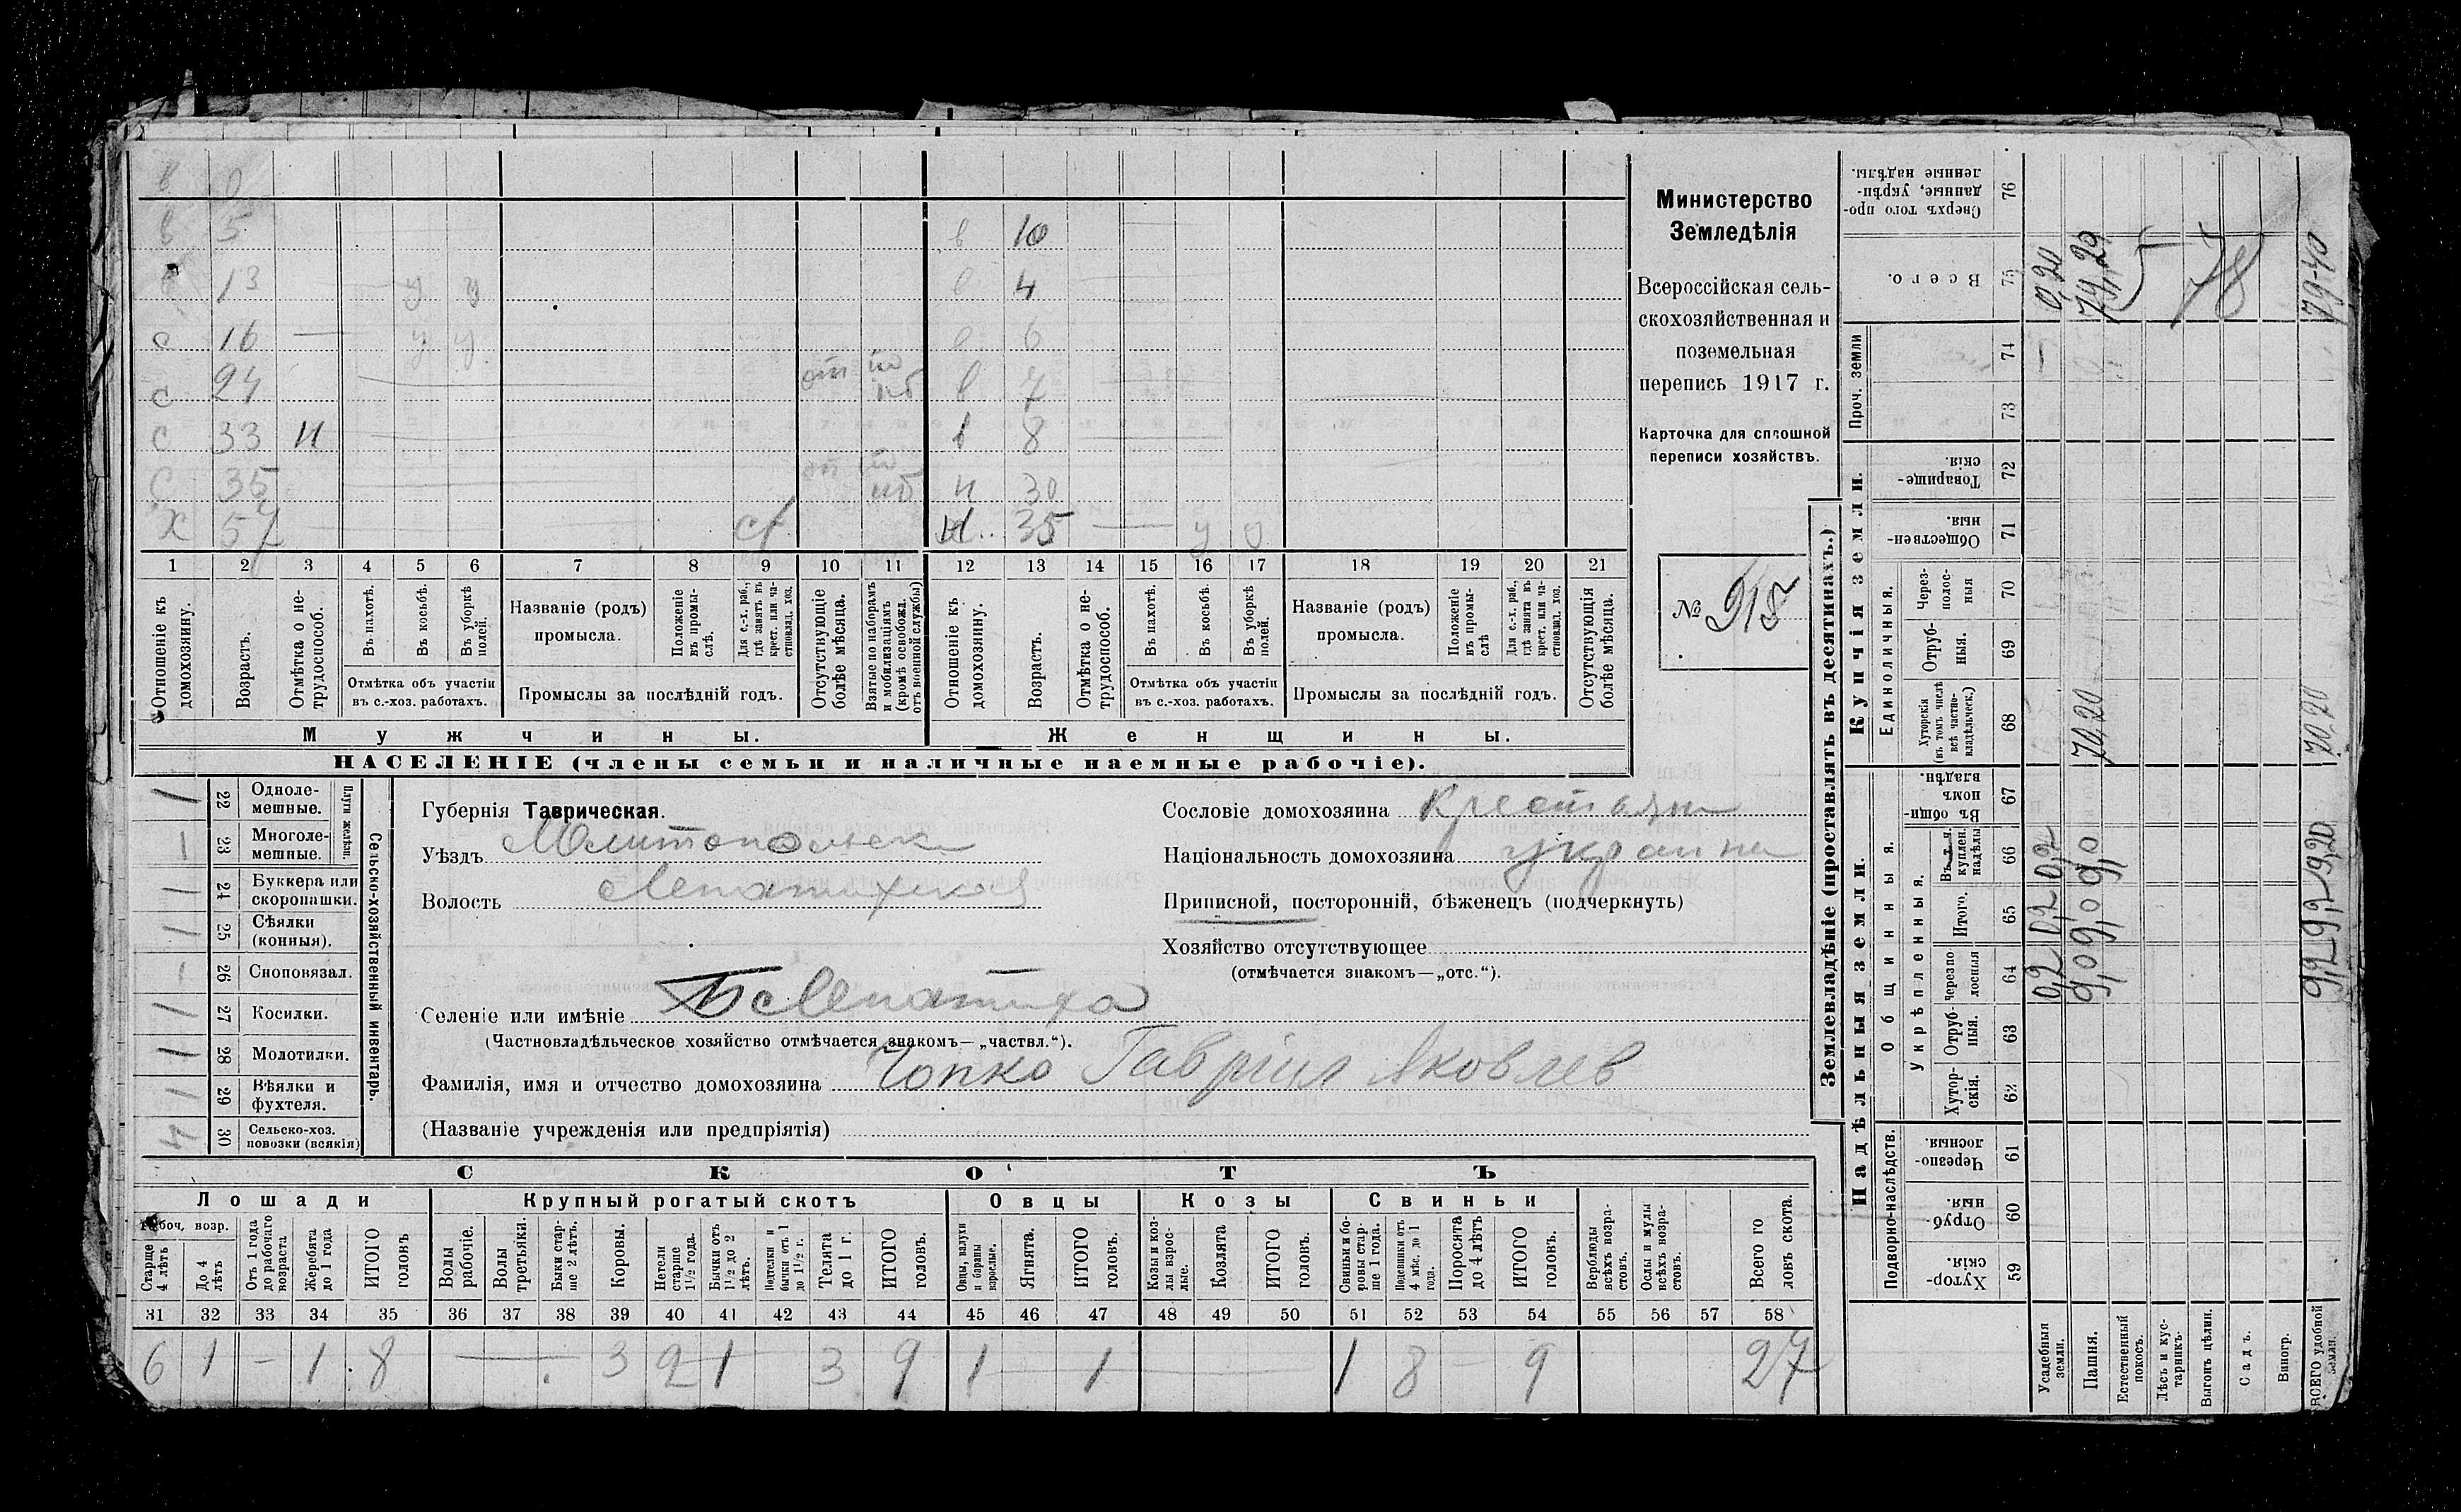 в
в 5 в 10
13 у у в 4
с 16 — у у в 6
с 24 в 7
с 33 н в 8
с 35 н 30
х 57 35 — у у
1 2 3 4 5 6 7 8 9 10 11 12 13 14 15 16 17 18 19 20 21
Отношеніе къ домохозяину.
Возрастъ.
Отмѣтка о не-
трудоспособ.
Въ пахотѣ.
Въ косьбѣ.
Въ уборкѣ
полей.
Отмѣтка объ участіи
въ с.-хоз. работахъ.
Названіе (родъ)
промысла.
Положеніе
въ промы-
слѣ.
Для с.-х. раб.,
гдѣ занятъ въ
крест. или ча-
стновлад. хоз.
Промыслы за послѣдній годъ.
Отсутствующіе
болѣе мѣсяца.
Взятые по наборамъ
и мобилизаціямъ
(кромѣ освобожд.
отъ военной службы)
Отношеніе къ
домохозяину.
Возрастъ.
Отмѣтка о не-
трудоспособ.
Въ пахотѣ.
Въ косьбѣ.
Въ уборкѣ
полей.
Отмѣтка объ участіи
въ с.-хоз. работахъ.
Названіе (родъ)
промысла.
Положеніе
въ промы-
слѣ
Для с.-х. раб.,
гдѣ занята въ
крест. или ча-
стновлад. хоз.
Промыслы за послѣдній годъ.
Отсутствующія
болѣе мѣсяца.
Мужчины.
Женщины.
НАСЕЛЕНІЕ (члены семьи и наличные наемные рабочіе).
Министерство
Земледѣлія
Всероссійская сель-
скохозяйственная и
поземельная
перепись 1917 г.
Карточка для сплошной
переписи хозяйствъ.
№ 918
1 22 Одноле-
мешные.
1 23 Многоле-
мешные.
Плуги желѣзн.
1 24 Буккера или
скоропашки.
1 25 Сѣялки
(конныя).
1 26 Сноповязал.
1 27 Косилки.
1 28 Молотилки.
1 29 Вѣялки и
фухтеля.
4 30 Сельско-хоз.
повозки (всякія)
Сельско-хозяйственный инвентарь.
Губернія Таврическая.
Уѣздъ Мелитопольск
Волость Лепатихская
Селеніе или имѣніе Б Лепатиха
(Частновладѣльческое хозяйство отмѣчается знакомъ— „частвл.“).
Фамилія, имя и отчество домохозяина Чопко Гавріил Яковлев
(Названіе учрежденія или предпріятія)
Сословіе домохозяина Крестьян
Національность домохозяина украин
Приписной, посторонній, бѣженецъ (подчеркнуть)
Хозяйство отсутствующее
(отмѣчается знакомъ—„отс.“).
СКОТЪ
Лошади
Крупный рогатый скотъ
Овцы
Козы
Свиньи
Рабоч. возр.
Старше
4 лѣтъ
До 4
лѣтъ
Отъ 1 года
до рабочаго
возраста
Жеребята
до 1 года
ИТОГО
головъ
Волы
рабочіе.
Волы
третьяки.
Быки стар-
ше 2 лѣтъ.
Коровы.
Нетели
старше
1½ года.
Бычки отъ
1½ до 2
лѣтъ.
Нетелки и
бычки отъ 1
до 1½ г.
Телята
до 1 г.
ИТОГО
головъ.
Овцы, валухи
и бараны
взрослые.
Ягнята.
ИТОГО
головъ.
Козы и коз-
лы взрос-
лые.
Козлята
ИТОГО
головъ.
Свиньи и бо-
ровы стар-
ше 1 года.
Подсвинки отъ
4 мѣс. до 1
года.
Поросята
до 4 лѣтъ
ИТОГО
головъ.
Верблюды
всѣхъ возра-
стовъ.
Ослы и мулы
всѣхъ возра-
стовъ.
Всего го
ловъ скота.
31 32 33 34 35 36 37 38 39 40 41 42 43 44 45 46 47 48 49 50 51 52 53 54 55 56 57 58
6 1 — 1 8 — 3 2 1 3 9 1 1 — 1 8 9 27
Землевладѣніе (проставлять въ десятинахъ.)
Надѣльныя земли.
Купчія земли.
Проч. земли
Подворно-наслѣдств.
Общинныя.
Укрѣпленныя.
Единоличныя.
Хутор-
скія. 59
Отруб-
ныя. 60
Черезпо-
лосныя. 61
Хутор-
скія. 62
Отруб-
ныя. 63
черезпо
лосныя 64
Итого. 65
Въ т. ч.
куплен.
надѣлы 66
Въ общин-
номъ
владѣн. 67
Хуторскія
(въ томъ числѣ
всѣ частно-
владѣльческ.) 68
Отруб-
ныя. 69
Через-
полос-
ныя 70
Обществен-
ныя. 71
Товарище-
скія. 72
73
74
Всего. 75
Сверхъ того про-
данные, укрѣп-
ленные надѣлы. 76
Усадебныя
земли.
0,2 0,2 0,2 0,20
Пашня.
9,0 9,0 9,0 70,20 79,29
Естественный
покосъ.
5
Лѣсъ и кус-
тарникъ.
Выгонъ цѣлин.
78
Садъ.
Виногр.
ВСЕГО удобной
земли.
9,2 9,2 9,20 70,20 79-40